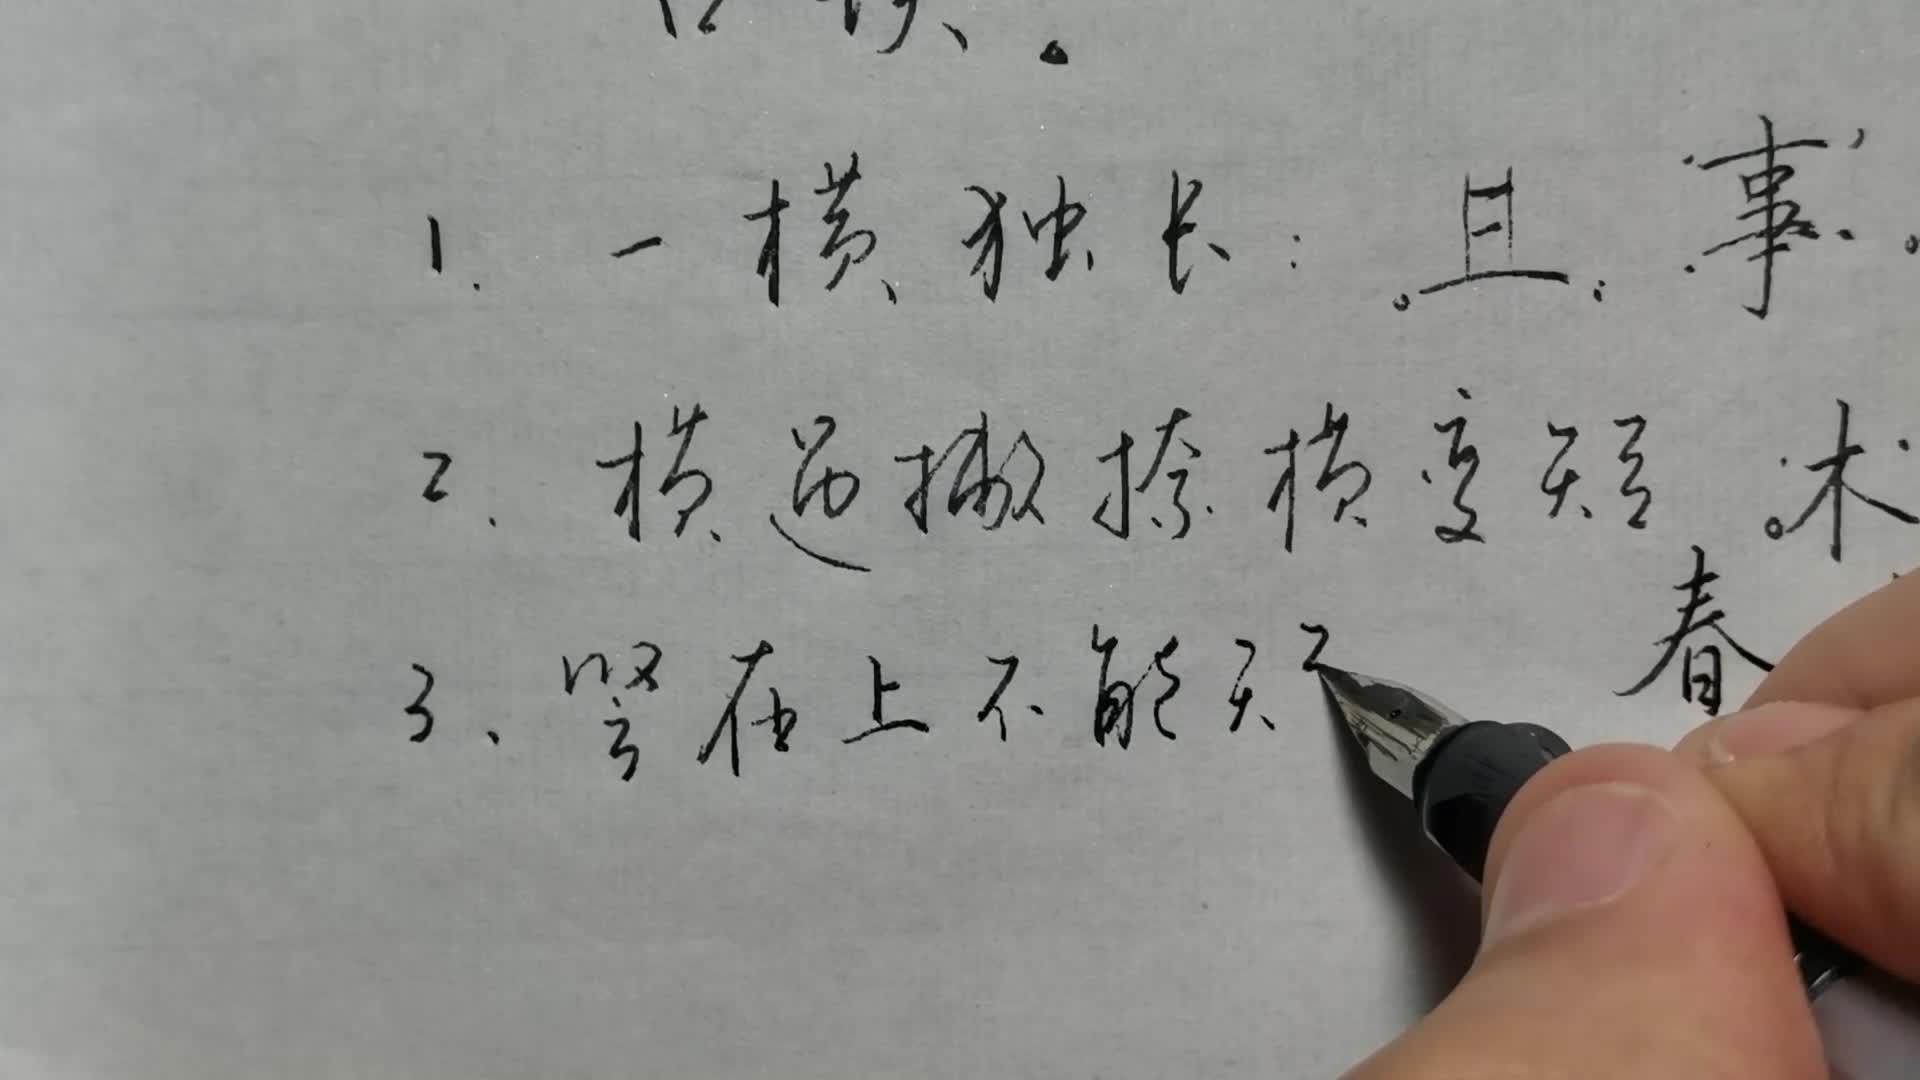 口诀。
1. 一横独长: 且、事。
2. 横遇撇捺横变短 木
春
3、竖在上不能短